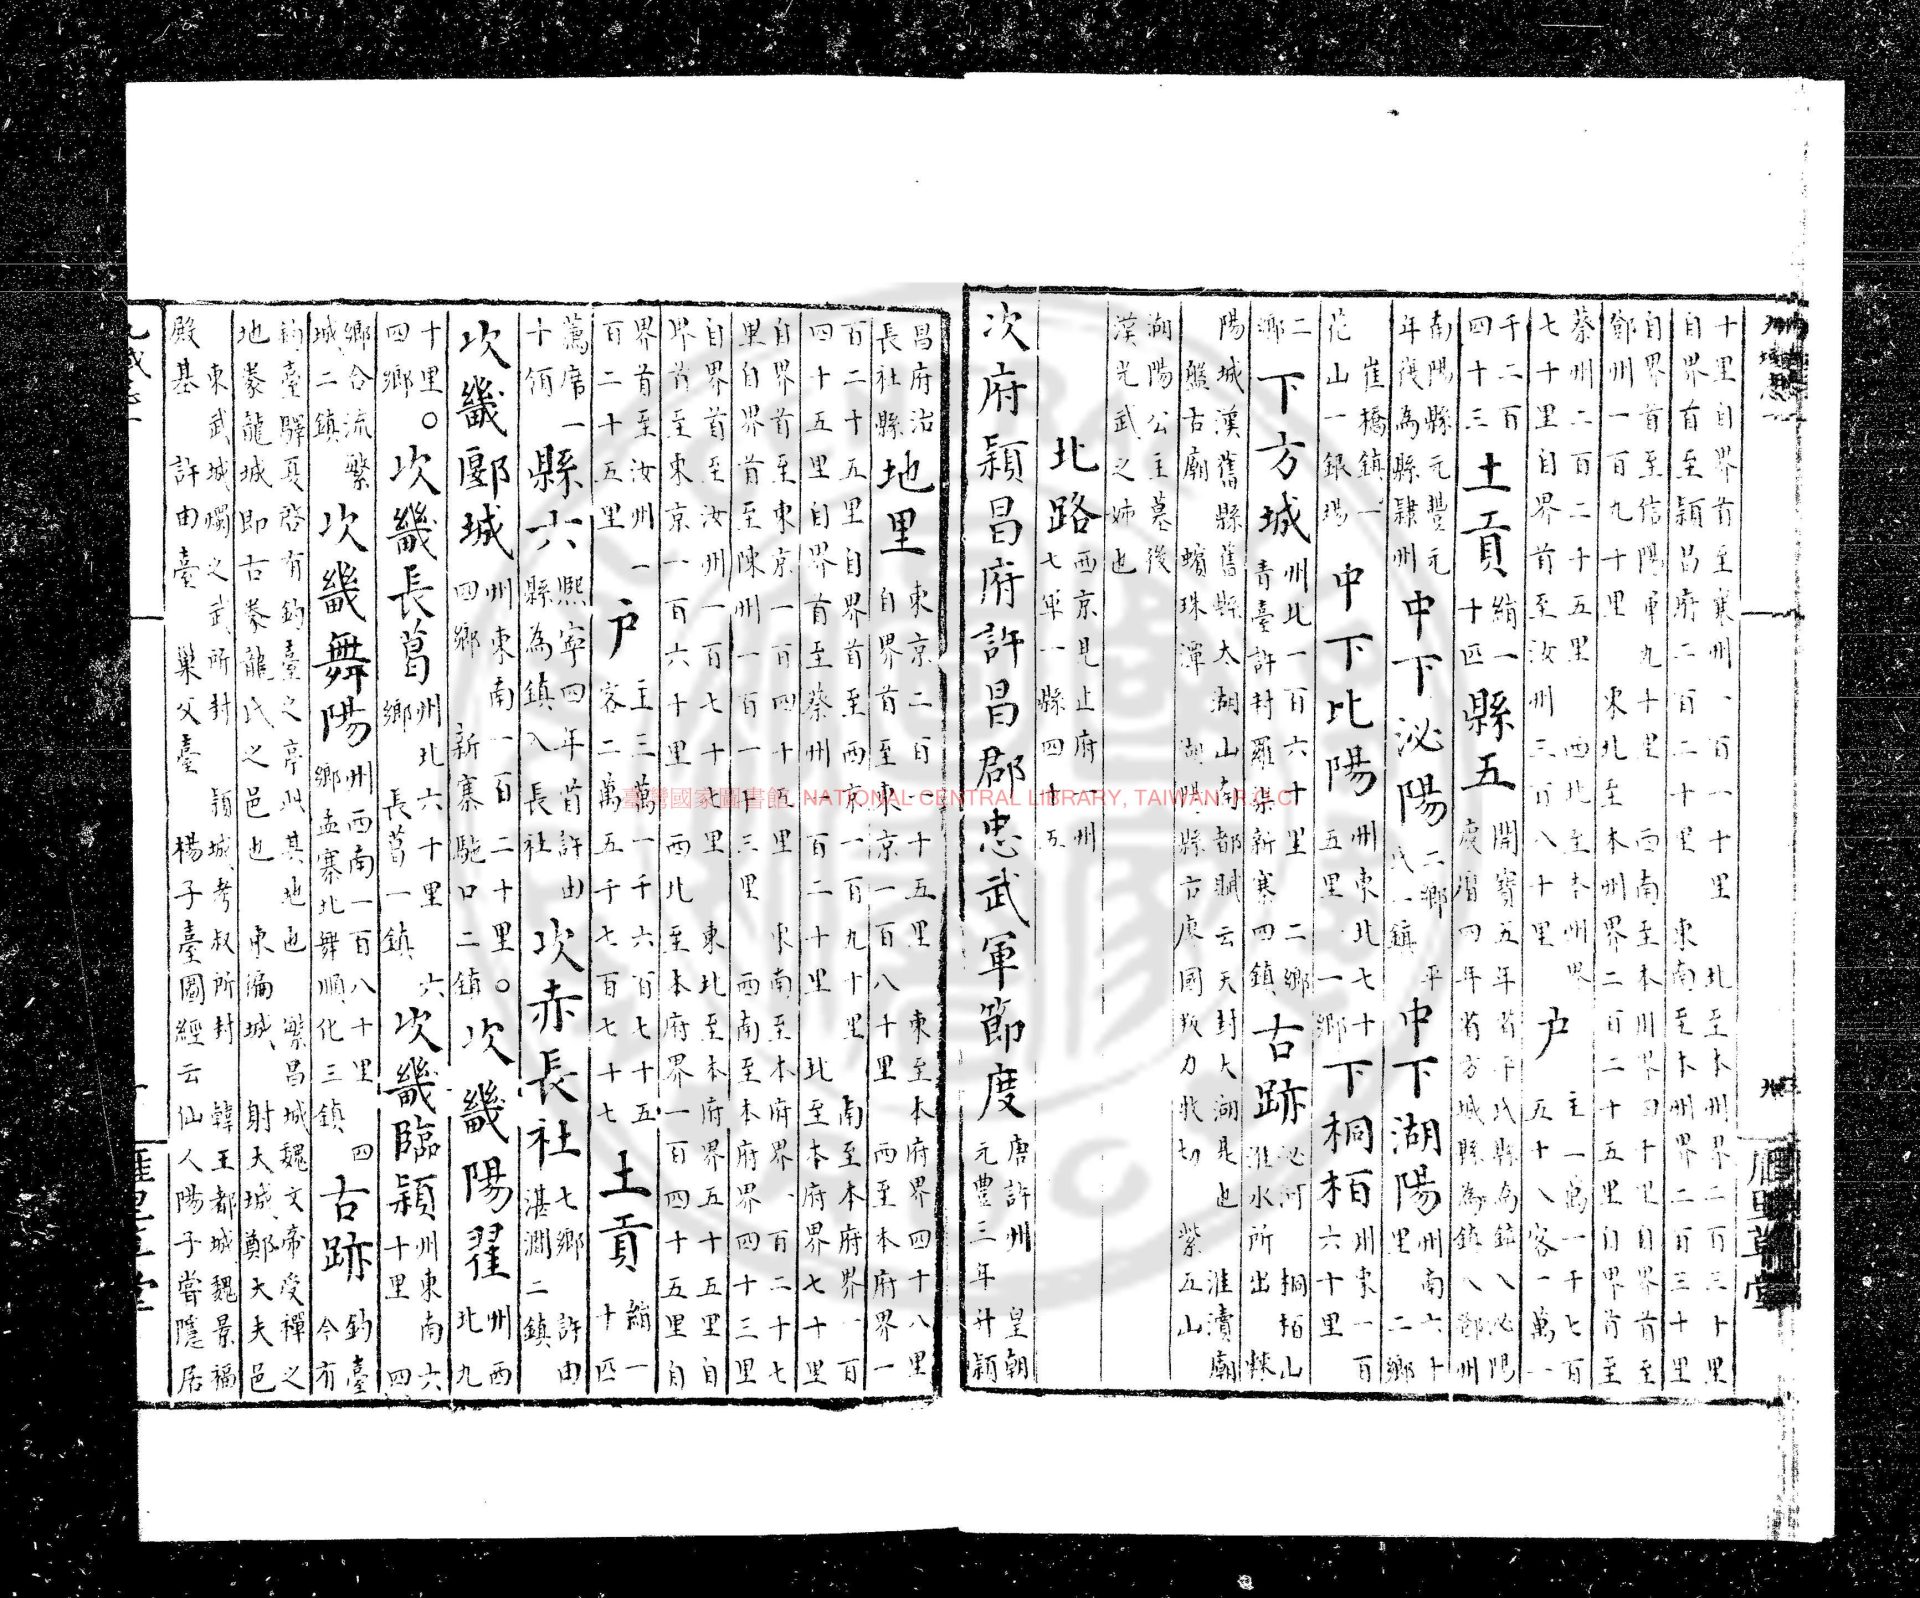 十里自界首至襄州一百一十里　北至本州界二百三十里
自界首至潁昌府二百二十里　東南至本州界二百三十里
自界首至信陽軍九十里　西南至本州界四十里自界首至
鄧州一百九十里　東北至本州界二百二十五里自界首至
蔡州二百二十五里　西北至本州界
七十里自界首至汝州三百八十里　户　主一萬一千七百
五十八客一萬一
千二百
四十三　土貢　絹一
十匹　縣五　開寶五年省平氏縣為鎮入泌陽
慶曆四年省方城縣為鎮入鄧州
南陽縣元豐元
年復為縣隸州　中下泌陽　二鄉平
氏一鎮　中下湖陽　州南六十
里二鄉
崔橋鎮一
花山一銀場　中下比陽　州東北七十
五里一鄉　下桐栢　州東一百
六十里
二
鄉　下方城　州北一百六十里二鄉
青臺許封羅渠新寨四鎮　古跡　泌河　桐栢山
淮水所出
陽城漢舊縣舊縣太湖山南都賦云天封大湖是也　淮瀆廟
盤古廟　蠙珠潭　湖陽縣古廖國　紫五山
湖陽公主墓後
漢光武之姊也
北路　西京見止府一州
七軍一縣四十五
次府潁昌府許昌郡忠武軍節度　唐許州　皇朝
元豐三年升潁
昌府治
長社縣　地里　東京二百一十五里　東至本府界四十八里
自界首至東京一百八十里　西至本府界一
百二十五里自界首至西京一百九十里　南至本府界一百
四十五里自界首至蔡州一百二十里　北至本府界七十里
自界首至東京一百四十五里　東南至本府界一百二十七
里自界首至陳州一百一十三里　西南至本府界四十三里
自界首至汝州一百七十七里　東北至本府界五十五里自
界首至東京一百六十里　西北至本府界一百四十五里自
界首至汝州一
百二十五里　户　主三萬一千六百七十五
客二萬五千七百七十七　土貢　絹一
十匹
藨席一
十領　縣六　熙寧四年省許田
縣為鎮入長社　次赤長社　七鄉　許田
湛澗二鎮
次畿郾城　州東南一百二十里。
四鄉　新寨馳口二鎮　次畿陽翟　州西
北九
十里。
四鄉　次畿長葛　州北六十里　六
鄉　長葛一鎮　次畿臨潁　州東南六
十里　四
鄉合流繁
城二鎮　次畿舞陽　州西南一百八十里　四
鄉孟寨北舞順化三鎮　古跡　鈞臺
今有
鈞臺驛夏啓有鈞臺之享此其地也　繁昌城魏文帝受禪之
地　豢龍城即古豢龍氏之邑也　東偏城　射犬城鄭大夫邑
東武城燭之武所封　潁城考叔所封　韓王都城魏景福
殿基　許由臺　巢父臺　楊子臺圖經云仙人陽子嘗隱居